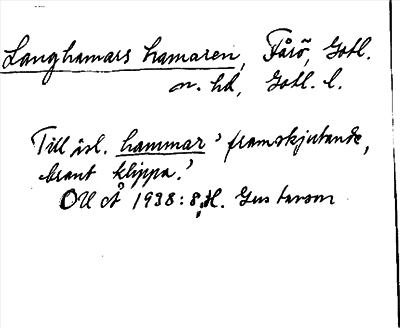 Langhamars hamaren, Fårö, Gotl.
n. hd, Gotl. l.
Till isl. hammar 'framskjutande,
brant klippa.'
OUÅ 1938:8, H. Gustavson